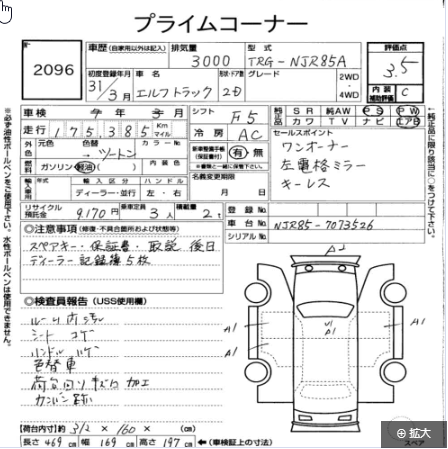 プライムコーナー
2096
車歴 (自家用以外は記入) 排気量 3000 型式 TRG-NJR85A
初度登録年月 31/3月 車名 エルフトラック 形状・ドア数 2D グレード 2WD 4WD
評価点 3.5
内装補助評価 C
車検 年 月 シフト F5
走行 175,385 Km マイル 冷房 AC
純正品 SR 純AW PS PW
カワ TV ナビ エアB
外装 元色 色替 ツートン 内装色
燃料 ガソリン 軽油
新車整備手帳(保証書付) 有・無
セールスポイント
ワンオーナー
左電格ミラー
キーレス
輸入車 年式 輸入区分 ハンドル
ディーラー・並行 左・右
名義変更期限 月 日
リサイクル預託金 9170円 乗車定員 3人 積載量 2t
登録No.
車台No. NJR85-7073526
シリアルNo.
◎注意事項 (修復・不具合箇所および状態等)
スペアキー・保証書・取説 後日
ディーラー記録簿5枚
◎検査員報告 (USS使用欄)
ルーム内汚れ
シート コゲ
ハンドル ハゲ
色替車
荷台回りキズ凹 加工
カンバン跡
A2
A1
A1
A1
A1
【荷台内寸】約 312 × 160 × (cm)
長さ 469 cm 幅 169 cm 高さ 197 cm ←(車検証上の寸法)
スペア
拡大
※必ず油性ボールペンをご使用下さい。水性ボールペンは使用できません。